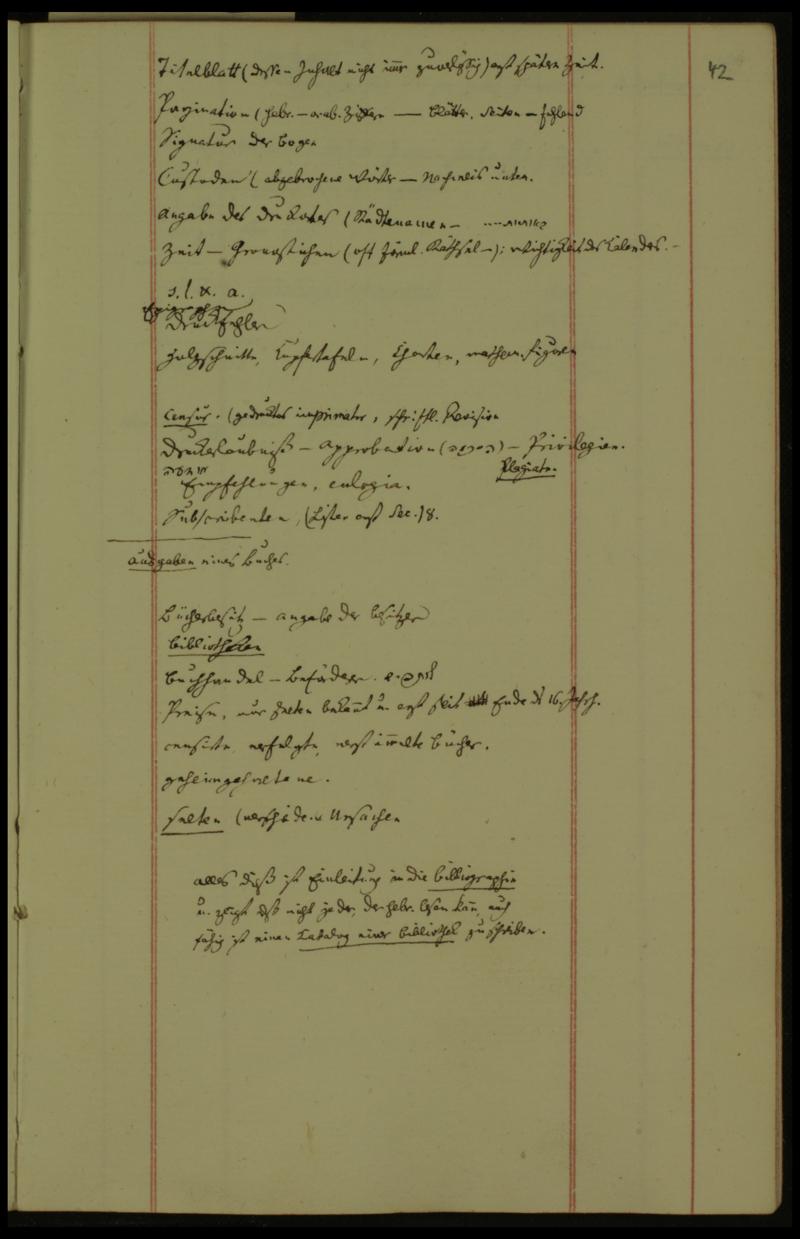 42
Titelblatt (dessen Inhalt nicht immer zuverlässig) erst spätere Zeit.
Pagination (hebr. – arab. Ziffern — Blätter, Seiten – fehlend
Signatur der Bogen
Custoden (abgebrochene Wörter — Nachweis unten.
Angabe des Druckortes (Städtenamen –
Zeit — Chronostichen (oft förml. Räthsel –); Wichtigkeit des Kalenders. –
s. l. & a.
Druckfehler
Holzschnitte, Kupfertafeln, Charten, mathem. Figuren
Censur. (gedrucktes imprimatur, schriftl. Revision
Druckerlaubniß – Approbation (הסכמה) – Privilegien.
Plagiate.
Empfehlungen, eulogia.
Subscribenten, (Listen erst Sec. 18.
Ausgaben eines Buches.
Bücherbesitz – Angabe der Besitzer
Bibliotheken
Buchhandel – Beförderer.
Preise, nur selten bekannt u. erst seit Ende d. 16. Jahrh.
censirte, verfolgte, verstümmelte Bücher.
geheimgehaltene.
selten (verschiedene Ursachen
alles dieß ist Einleitung in die Bibliographie
u. zeigt daß nicht jeder, der hebr. lesen kann, auch
fähig ist einen Catalog einer Bibliothek zu schreiben.